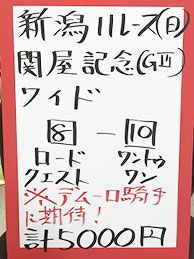 新潟11レース(日)
関屋記念(GⅢ)
ワイド
8 — 10
ロード ワントゥ
クエスト ワン
※デムーロ騎手
に期待!
計5000円